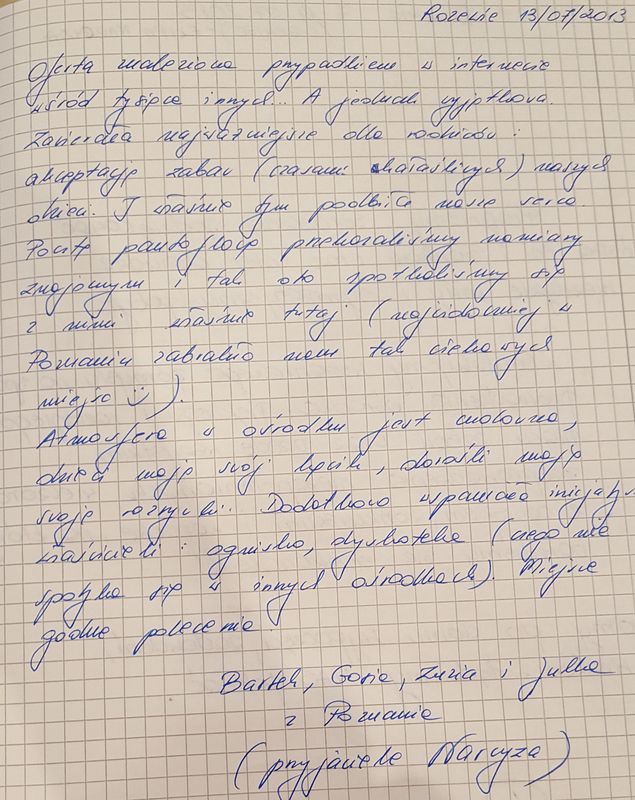 Rozewie 13/07/2013
Oferta znaleziona przypadkiem w internecie
wśród tysiąca innych.. A jednak wyjątkowa.
Zawierała najważniejsze dla rodziców:
akceptację zabaw (czasami hałaśliwych) naszych
dzieci. I właśnie tym podbiła nasze serca.
Pocztą pantoflową przekazaliśmy namiary
znajomym i tak oto spotkaliśmy się
z nimi właśnie tutaj (najwidoczniej w
Poznaniu zabrakło nam tak ciekawych
miejsc ☺).
Atmosfera w ośrodku jest cudowna,
dzieci mają swój kącik, dorośli mają
swoje rozrywki. Dodatkowo wspaniała inicjatyw
właścicieli: ognisko, dyskoteka (czego nie
spotyka się w innych ośrodkach). Miejsce
godne polecenia.
Bartek, Gosia, Zuzia i Julka
z Poznania
(przyjaciele Narcyza)